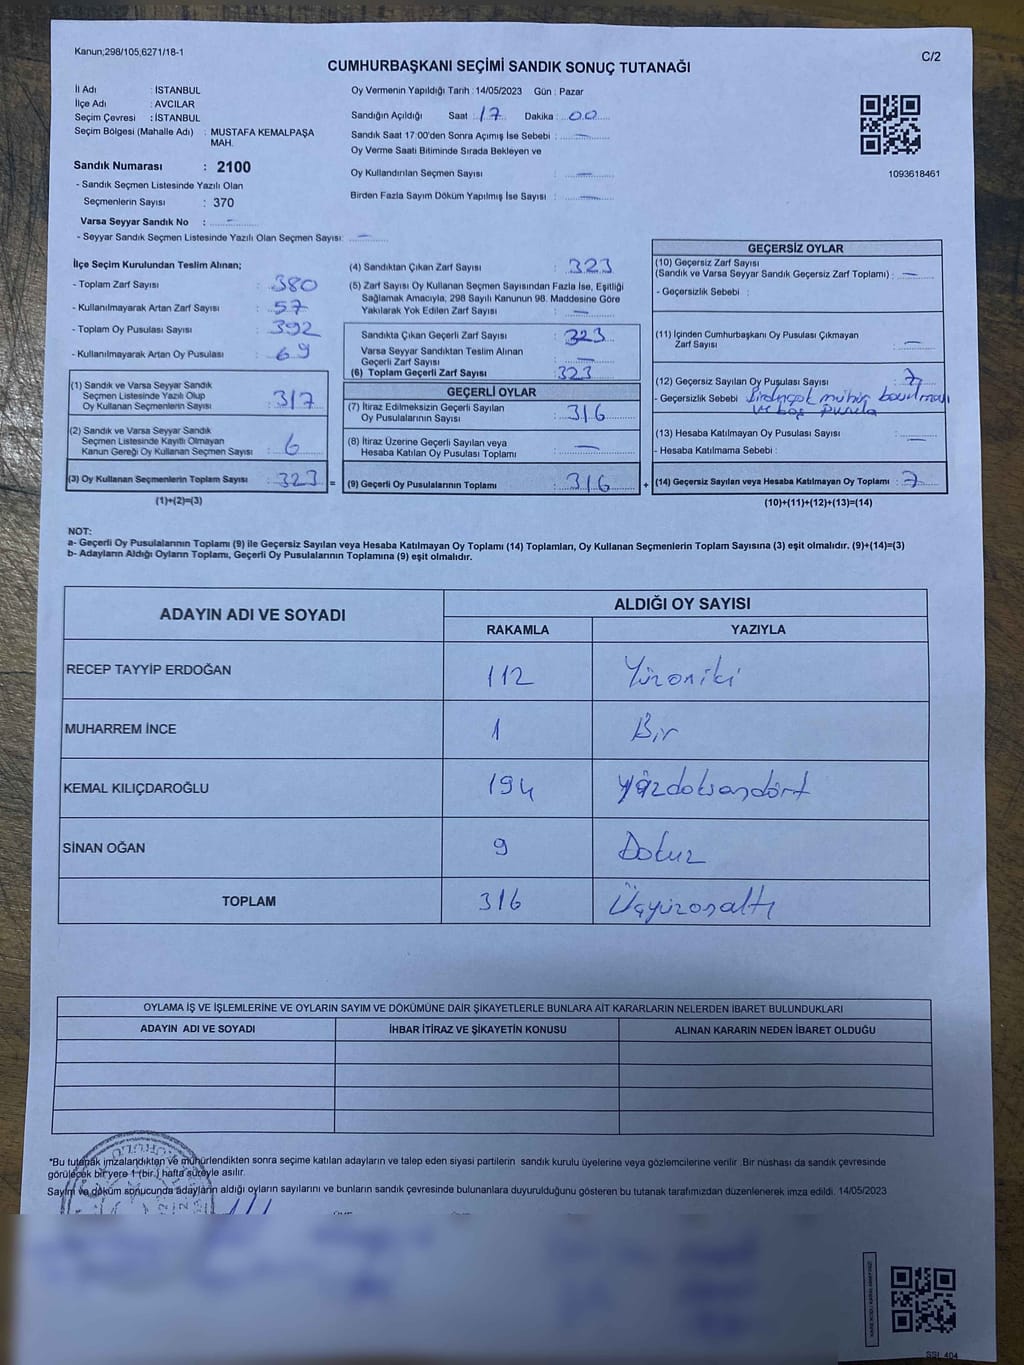 Kanun;298/105,6271/18-1
C/2
CUMHURBAŞKANI SEÇİMİ SANDIK SONUÇ TUTANAĞI
İl Adı : İSTANBUL
İlçe Adı : AVCILAR
Seçim Çevresi : İSTANBUL
Seçim Bölgesi (Mahalle Adı) : MUSTAFA KEMALPAŞA
MAH.
Sandık Numarası : 2100
- Sandık Seçmen Listesinde Yazılı Olan
Seçmenlerin Sayısı : 370
Varsa Seyyar Sandık No : –
- Seyyar Sandık Seçmen Listesinde Yazılı Olan Seçmen Sayısı: –
Oy Vermenin Yapıldığı Tarih : 14/05/2023 Gün : Pazar
Sandığın Açıldığı Saat : 17 Dakika : 00
Sandık Saat 17:00'den Sonra Açımış İse Sebebi : –
Oy Verme Saati Bitiminde Sırada Bekleyen ve
Oy Kullandırılan Seçmen Sayısı : –
Birden Fazla Sayım Döküm Yapılmış İse Sayısı : –
1093618461
İlçe Seçim Kurulundan Teslim Alınan;
- Toplam Zarf Sayısı : 380
- Kullanılmayarak Artan Zarf Sayısı : 57
- Toplam Oy Pusulası Sayısı : 392
- Kullanılmayarak Artan Oy Pusulası : 69
(1) Sandık ve Varsa Seyyar Sandık
Seçmen Listesinde Yazılı Olup
Oy Kullanan Seçmenlerin Sayısı : 317
(2) Sandık ve Varsa Seyyar Sandık
Seçmen Listesinde Kayıtlı Olmayan
Kanun Gereği Oy Kullanan Seçmen Sayısı : 6
(3) Oy Kullanan Seçmenlerin Toplam Sayısı : 323 =
(1)+(2)=(3)
(4) Sandıktan Çıkan Zarf Sayısı : 323
(5) Zarf Sayısı Oy Kullanan Seçmen Sayısından Fazla İse, Eşitliği
Sağlamak Amacıyla, 298 Sayılı Kanunun 98. Maddesine Göre
Yakılarak Yok Edilen Zarf Sayısı : –
Sandıkta Çıkan Geçerli Zarf Sayısı : 323
Varsa Seyyar Sandıktan Teslim Alınan
Geçerli Zarf Sayısı : –
(6) Toplam Geçerli Zarf Sayısı : 323
GEÇERLİ OYLAR
(7) İtiraz Edilmeksizin Geçerli Sayılan
Oy Pusulalarının Sayısı : 316
(8) İtiraz Üzerine Geçerli Sayılan veya
Hesaba Katılan Oy Pusulaları Toplamı : –
(9) Geçerli Oy Pusulalarının Toplamı : 316 +
GEÇERSİZ OYLAR
(10) Geçersiz Zarf Sayısı
(Sandık ve Varsa Seyyar Sandık Geçersiz Zarf Toplamı) : –
- Geçersizlik Sebebi :
(11) İçinden Cumhurbaşkanı Oy Pusulası Çıkmayan
Zarf Sayısı : –
(12) Geçersiz Sayılan Oy Pusulası Sayısı : 7
- Geçersizlik Sebebi : Birdençok mühür basılması
ve boş pusula
(13) Hesaba Katılmayan Oy Pusulası Sayısı : –
- Hesaba Katılmama Sebebi :
(14) Geçersiz Sayılan veya Hesaba Katılmayan Oy Toplamı : 7
(10)+(11)+(12)+(13)=(14)
NOT:
a- Geçerli Oy Pusulalarının Toplamı (9) ile Geçersiz Sayılan veya Hesaba Katılmayan Oy Toplamı (14) Toplamları, Oy Kullanan Seçmenlerin Toplam Sayısına (3) eşit olmalıdır. (9)+(14)=(3)
b- Adayların Aldığı Oyların Toplamı, Geçerli Oy Pusulalarının Toplamına (9) eşit olmalıdır.
ADAYIN ADI VE SOYADI ALDIĞI OY SAYISI
RAKAMLA YAZIYLA
RECEP TAYYİP ERDOĞAN 112 Yüzoniki
MUHARREM İNCE 1 Bir
KEMAL KILIÇDAROĞLU 194 yüzdoksandört
SİNAN OĞAN 9 Dokuz
TOPLAM 316 Üçyüzonaltı
OYLAMA İŞ VE İŞLEMLERİNE VE OYLARIN SAYIM VE DÖKÜMÜNE DAİR ŞİKAYETLERLE BUNLARA AİT KARARLARIN NELERDEN İBARET BULUNDUKLARI
ADAYIN ADI VE SOYADI İHBAR İTİRAZ VE ŞİKAYETİN KONUSU ALINAN KARARIN NEDEN İBARET OLDUĞU
*Bu tutanak imzalandıktan ve mühürlendikten sonra seçime katılan adayların ve talep eden siyasi partilerin sandık kurulu üyelerine veya gözlemcilerine verilir .Bir nüshası da sandık çevresinde
görülecek bir yere 1 (bir.) hafta süreyle asılır.
Sayım ve döküm sonucunda adayların aldığı oyların sayılarını ve bunların sandık çevresinde bulunanlara duyurulduğunu gösteren bu tutanak tarafımızdan düzenlenerek imza edildi. 14/05/2023